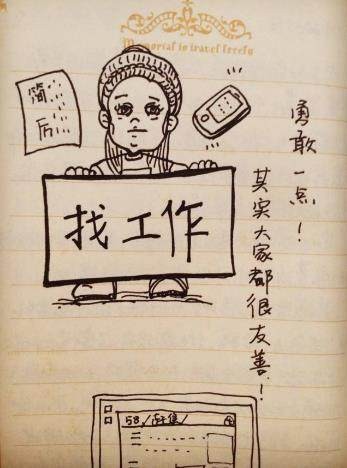 Memorial to travel freely
简历
找工作
勇敢一点！
其实大家都很友善！
58/赶集